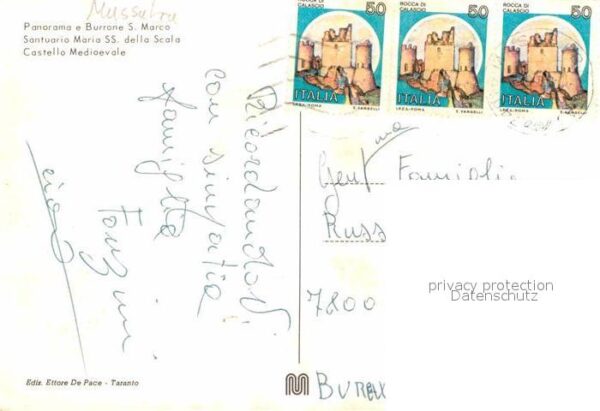 Massafra
Panorama e Burrone S. Marco
Santuario Maria SS. della Scala
Castello Medioevale
50 ROCCA DI CALASCIO
ITALIA
I.P.Z.S.-ROMA E. VANGELLI
50 ROCCA DI CALASCIO
ITALIA
I.P.Z.S.-ROMA E. VANGELLI
50 ROCCA DI CALASCIO
ITALIA
I.P.Z.S.-ROMA E. VANGELLI
Ricordandovi
con simpatia
famiglia
ciao
Gent.ma Famiglia
Russ
7800
privacy protection
Datenschutz
Ediz. Ettore De Pace - Taranto